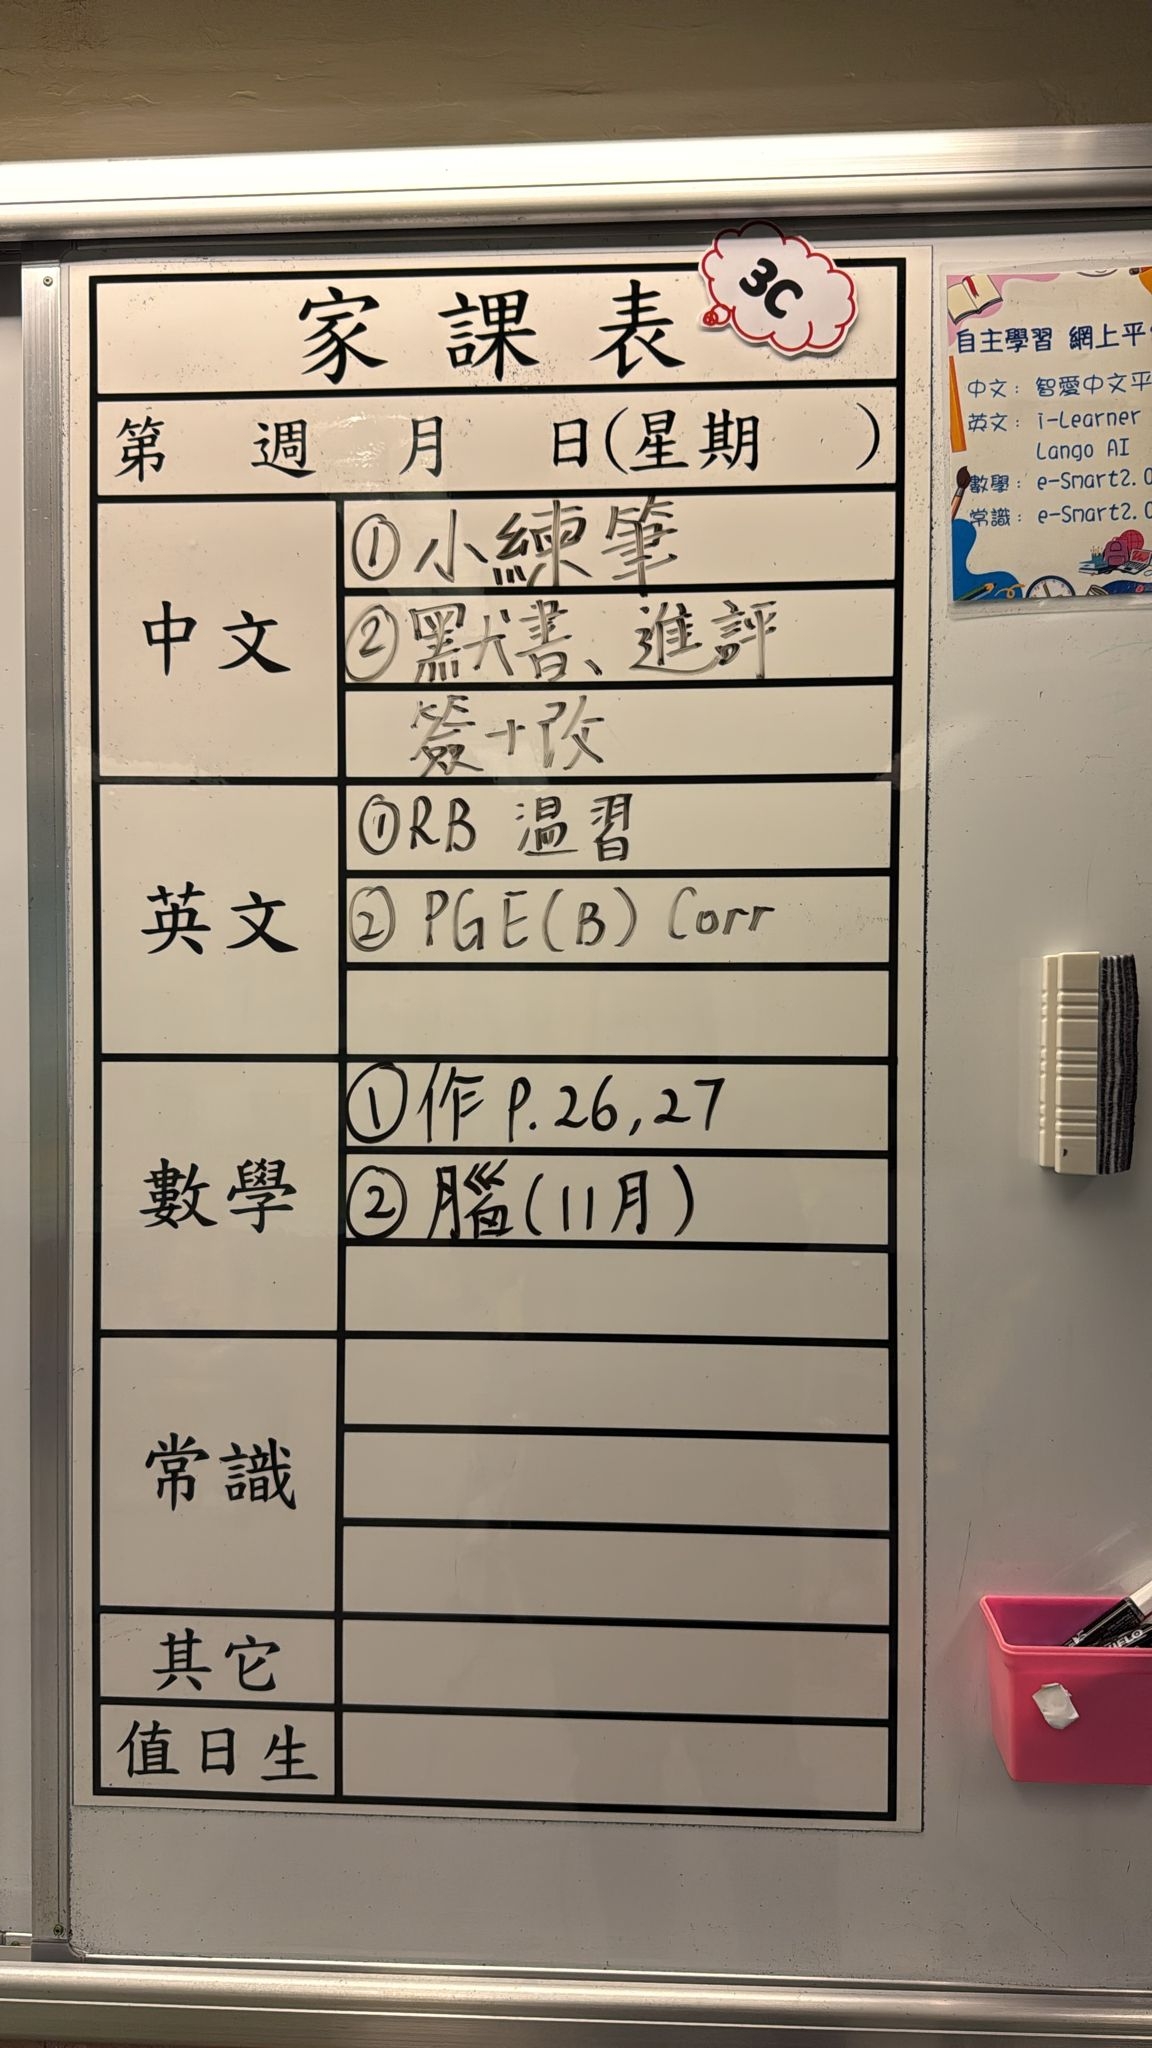 家課表
3C
第 週 月 日(星期 )
中文
①小練筆
②默書、進評
簽+改
英文
①RB 溫習
②PGE(B) Corr
數學
①作 P.26,27
②腦(11月)
常識
其它
值日生
自主學習 網上平
中文: 智愛中文平
英文: i-Learner
Lango AI
數學: e-Smart2.0
常識: e-Smart2.0